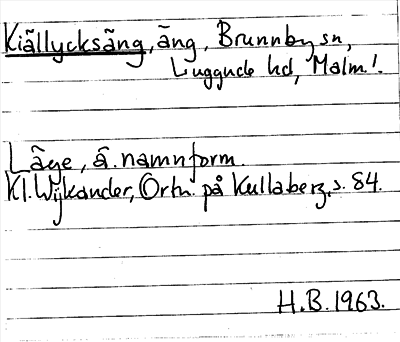 Kiällycksäng, äng, Brunnby sn,
Luggude hd, Malm!.
Läge, ä. namnform.
Kl. Wijkander, Ortn. på Kullaberg, s. 84.
H.B. 1963.